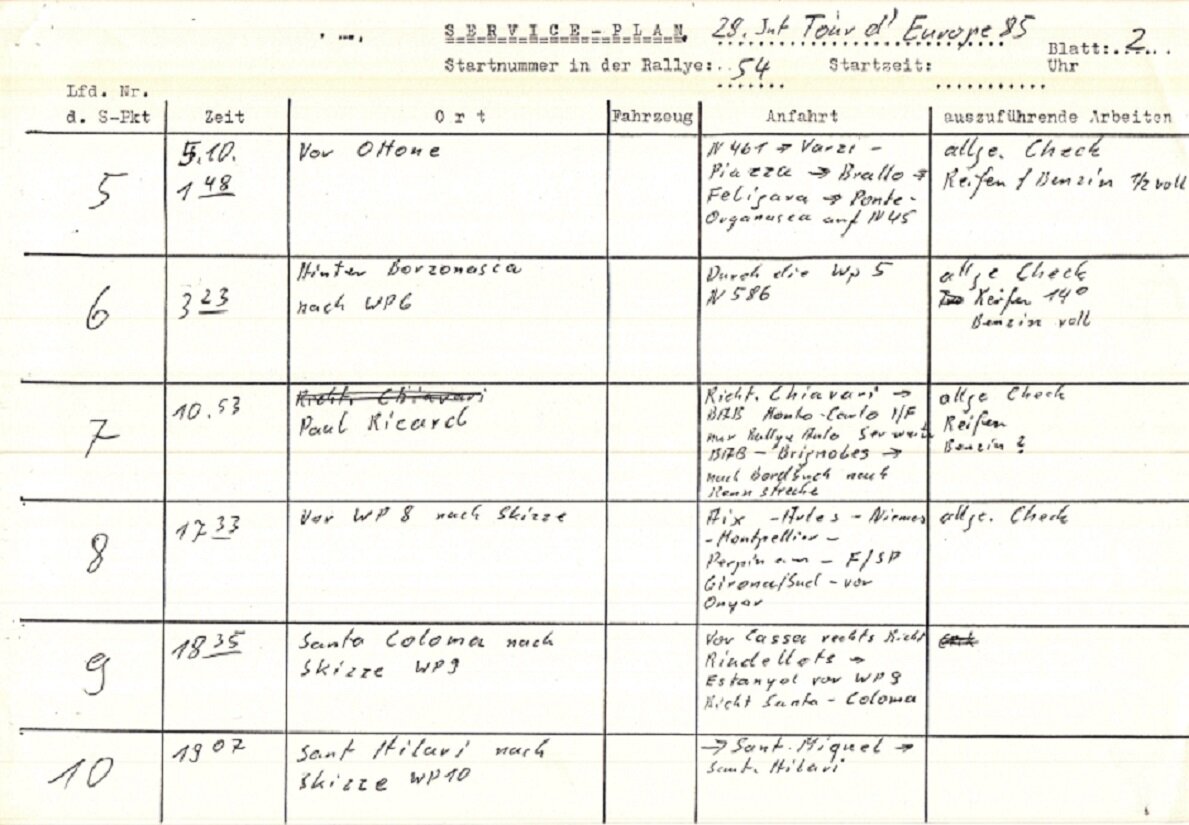 SERVICE-PLAN 28. Int Tour d' Europe 85
Blatt: 2
Startnummer in der Rallye: 54 Startzeit: Uhr
Lfd. Nr.
d. S-Pkt Zeit Ort Fahrzeug Anfahrt auszuführende Arbeiten
5
5.10.
1 48
Vor Ottone
N 461 → Varzi -
Piazza → Brallo →
Feligara → Ponte-
Organasca auf N45
allge. Check
Reifen / Benzin 1/2 voll
6
3 23
Hinter Borzonasca
nach WP6
Durch die Wp 5
N 586
allge Check
Reifen 14°
Benzin voll
7
10.53
Richt. Chiavari
Paul Ricard
Richt. Chiavari →
BAB Monte-Carlo I/F
nur Rallye Auto
BAB - Brignoles →
nach Bordbuch nach
Rennstrecke
allge Check
Reifen
Benzin ?
8
17 33
Vor WP 8 nach Skizze
Aix - Arles - Niemes
- Montpellier -
Perpinan - F/SP
Girona/Sud - vor
Onyar
allge. Check
9
18 35
Santa Coloma nach
Skizze WP9
Vor Cassa rechts Richt
Riudellots →
Estanyol vor WP 9
Richt Santa - Coloma
10
19 07
Sant Hilari nach
Skizze WP10
→ Sant. Miquel →
Sant. Hilari